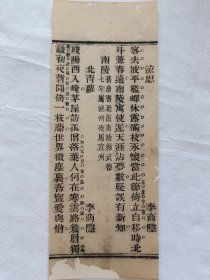 涼思 李商隱
客去波平檻蟬休露滿枝永懷當此節倚立自移時北
斗兼春遠南陵寓使遲天涯占夢數疑誤有新知
南陵
七年屬池州後屬宣州
北青蘿 李商隱
殘陽西入崦茅屋訪孤僧落葉人何在寒雲路幾層獨
敲初夜磬閒倚一枝藤世界微塵裏吾寧愛與憎